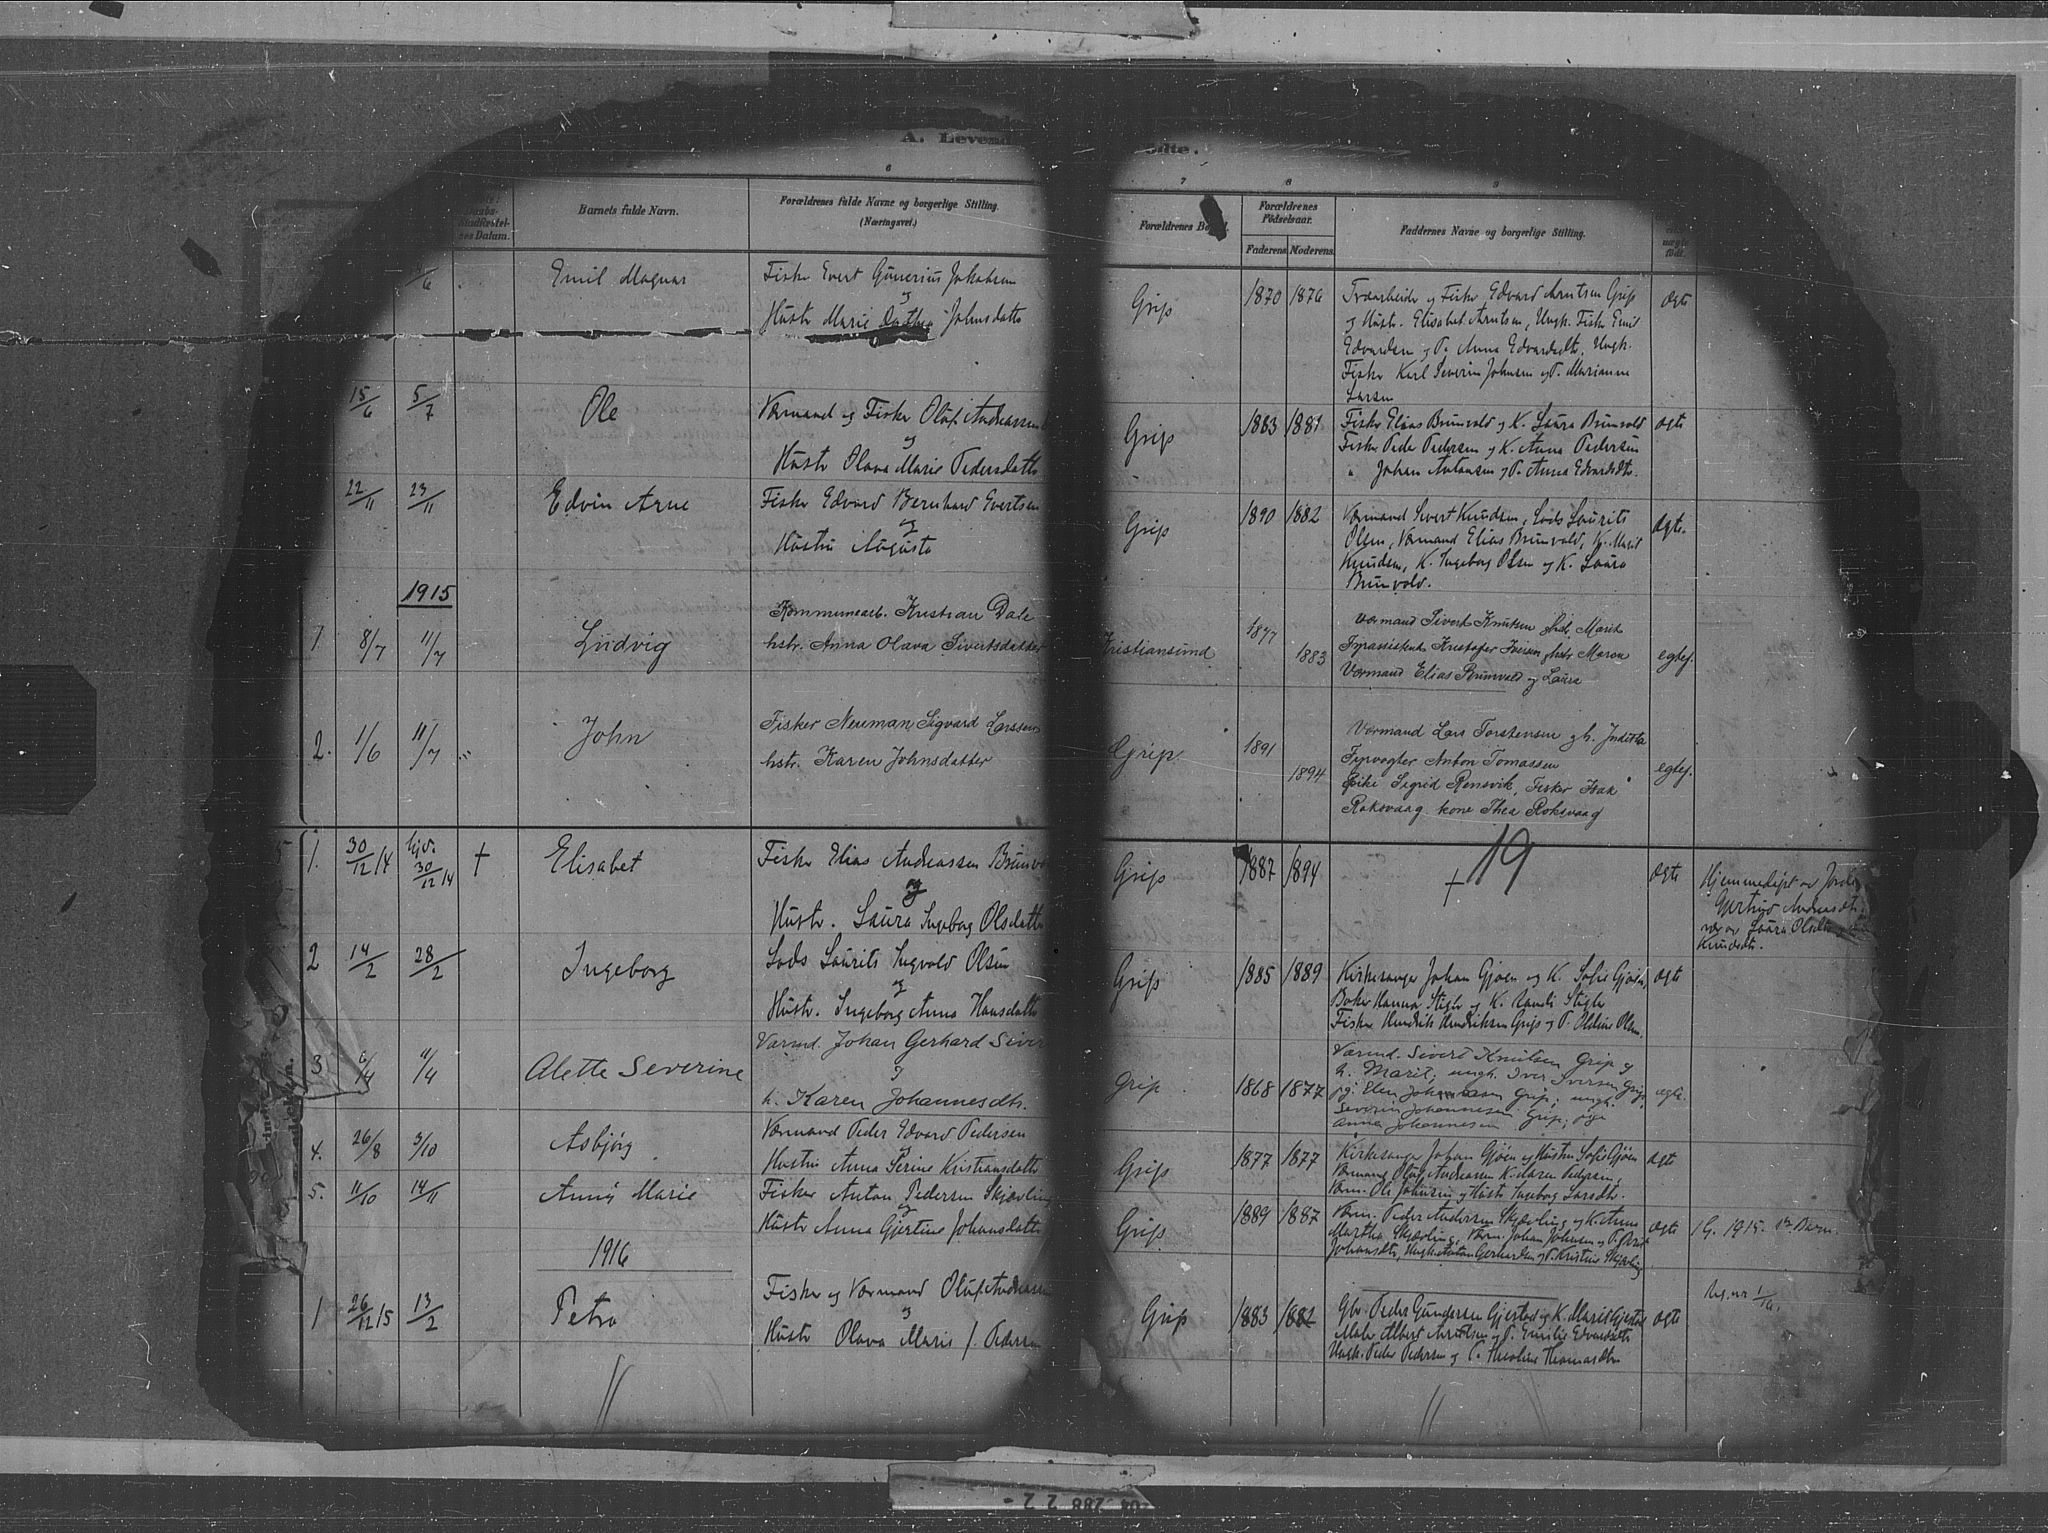 A. Levend
ødte.
6
7
8
9
Daabs-
stadfæstel-
ses Datum.
Barnets fulde Navn.
Forældrenes fulde Navne og borgerlige Stilling.
(Næringsvei.)
Forældrenes Bo
Forældrenes
Fødselsaar.
Faderens
Moderens.
Faddernes Navne og borgerlige Stilling.
uægte
født.
Emil Magnus
Fisker Evert Gunerius Jakobsen
og
Hustr Marie Dorthea Johnsdatter
Grip
1870 1876
Træarbeider og Fisker Edvard Arntsen Grip
og Hustr. Elisabet Arntsen, Ungk. Fisker Emil
Edvardsen og P. Anna Edvardsdtr, Ungk.
Fisker Karl Severin Johnsen og P. Marianne
Larsen
ægte
15/6 5/7
Ole
Vormand og Fisker Oluf Andreassen
og
Hustr Olava Marie Pedersdatter
Grip
1883 1881
Fisker Elias Brunvold og K. Laura Brunvold
Fisker Peder Pedersen og K. Anna Pedersen
" Johan Antonsen og P. Anna Edvardsdtr.
ægte
22/11 23/11
Edvin Arne
Fisker Edvard Bernhard Evertsen
og
Hustru Augusta
Grip
1890 1882
Vormand Sivert Knudsen, Lods Laurits
Olsen, Vormand Elias Brunvold, K. Marit
Knudsen, K. Ingeborg Olsen og K. Laura
Brunvold.
ægte.
1915
1 8/7 11/7
Ludvig
Kommunearb. Kristian Dale
hstr. Anna Olava Sivertsdatter
Kristiansund
1877 1883
Vormand Sivert Knutsen og hst. Marit
Fyrassistent Kristofer Iversen og hstr Maren
Vormand Elias Brunvold og Laura
egtef.
2. 1/6 11/7
John
Fisker Neuman Sigvard Larssen
hstr. Karen Johnsdatter
Grip
1891 1894
Vormand Lars Torstensen og h. Juditta
Fyrvogter Anton Tomassen
Pike Sigrid Rensvik, Fisker Isak
Roksvaag kone Thea Roksvaag
egtef.
19
1. 30/12 14 hjd. 30/12 14 †
Elisabet
Fisker Elias Andreassen Brunvo
og
Hustr. Laura Ingeborg Olsdatter
Grip
1887 1894
†
ægte
Hjemmedøpt av Jord
Gertrud Andreasdtr.
Laura Olsdtr
Knudsdtr.
2 14/2 28/2
Ingeborg
Lods Laurits Ingvald Olsen
og
Hustr. Ingeborg Anna Hansdatter
Grip
1885 1889
Kirkesanger Johan Gjøen og K. Sofie Gjøen,
Baker Hanna Stigle og K. Randi Stigle
Fisker Hendrik Hendriksen Grip og P. Oldine Olsen.
ægte
3 6/4 11/4
Alette Severine
Varmd. Johan Gerhard Siver
h. Karen Johannesdtr.
Grip
1868 1877
Varmd. Sivert Knutsen Grip og
h. Marit; ungk. Iver Iversen Grip;
pg: Elen Johannesen Grip; ungk.
Severin Johannesen Grip; pige
Anna Johannesen
4. 26/8 3/10
Asbjørg
Vormand Peder Edvard Pedersen
Hustru Anna Serine Kristiansdatter
Grip
1877 1877
Kirkesanger Johan Gjøen og Hustru Sofie Gjøen
Vormand Oluf Andreassen K. Maren Pedersen,
Vorm. Ole Johnsen og Hustr Ingeborg Larsdtr.
ægte
5. 11/10 14/11
Anny Marie
Fisker Anton Pedersen Skjævling
og
Hustr Anna Gjertine Johansdatter
Grip
1889 1887
Vorm. Peder Andersen Skjævling og K. Anne
Martha Skjævling, Vorm. Johan Johnsen og P. Berit
Johansdtr, Ungk. Anton Gerhardsen og P. Kristine Skjævling
ægte
1 G. 1915. 1ste Barn.
1916
1 26/12 15 13/2
Petra
Fisker og Vormand Oluf Andreassen
og
Hustr Olava Marie f. Pedersen
Grip
1883 1882
Gbr. Peder Gundersen Gjerstad og K. Marit Gjerstad
Maler Albert Arntsen og P. Emilie Edvardsdtr
Ungk. Peder Pedersen og P. Nicoline Thomasdtr
ægte